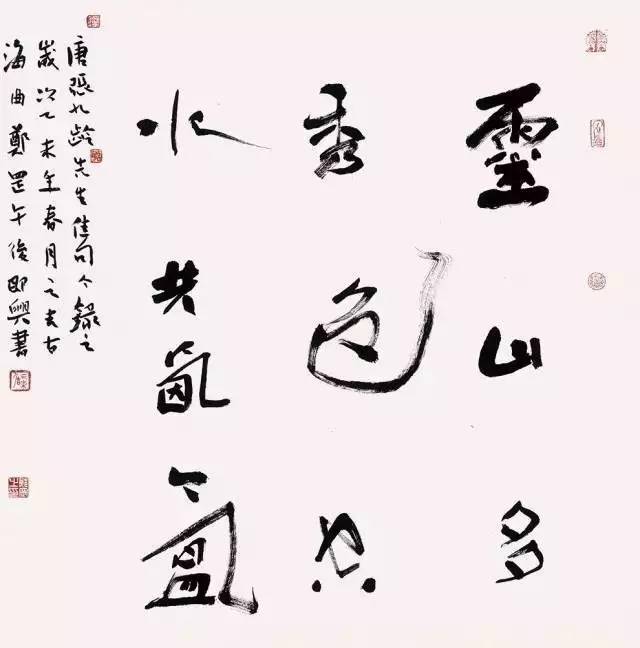 靈山多
秀色空
水共氤氳
唐張九齡先生佳句今錄之
歲次乙未年春月之古
海曲鄭罡午後即興書